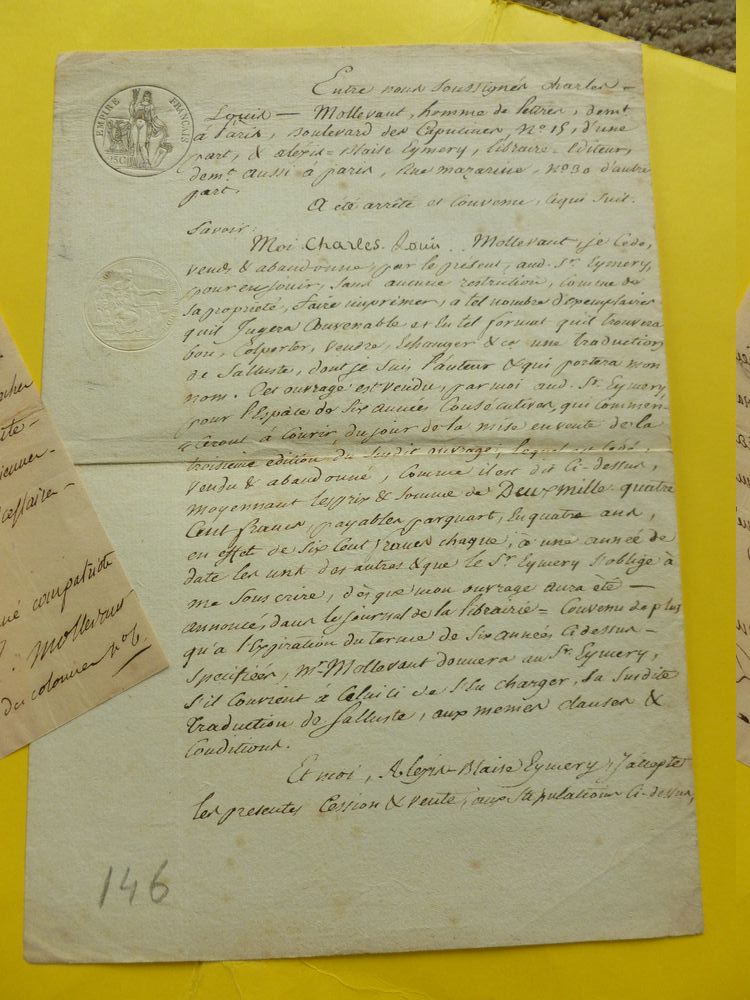 EMPIRE FRANÇAIS
50 C
Entre nous soussignés Charles-
Louis — Mollevaut, homme de lettres, demt
à Paris, Boulevard des Capucines, No 15, d'une
part, & Alexis-Blaise Eymery, Libraire-Editeur,
demt aussi à paris, Rue mazarine, No 30 d'autre
part,
A été arrêté et Convenu, Cequi Suit.
Savoir:
Moi Charles Louis Mollevaut, je Cede,
vends & abandonne, par le présent, aud. Sr Eymery,
pour en jouir, Sans aucune restriction, Comme de
Sa propriété, faire imprimer, a tel nombre d'exemplaires
quil Jugera Convenable et En tel format quil trouvera
bon, Colporter, vendre, Echanger & ce une traduction
de Salluste, dont je Suis l'auteur & qui portera mon
nom. Cet ouvrage est vendu, par moi aud. Sr Eymery,
pour l'Espace de Six années Consécutives, qui Commen-
Ceront à Courir du jour de la mise en vente de la
troisieme édition du Susdit ouvrage; lequel est Cédé,
vendu & abandonné, Comme il est dit Ci-dessus,
moyennant le prix & Somme de Deux mille quatre
Cent francs, payables par quart, En quatre ans,
en effet de Six Cent francs chaque, à une année de
date les uns des autres & que le Sr Eymery S'oblige à
me Souscrire, dès que mon ouvrage aura été —
annoncé, dans le journal de la librairie = Convenu de plus
qu'a l'Expiration du terme de Six années Ci-dessus —
Spécifiées, Mr Mollevaut donnera au Sr Eymery,
S'il Convient à Celui ci de S'En charger, Sa Susdite
traduction de Salluste, aux memes Clauses &
Conditions.
Et moi, Alexis-Blaise Eymery, J'accepte
les presentes Cession & vente, aux Stipulations Ci-dessus,
146
compatriote
Mollevaut
du colombier no 6